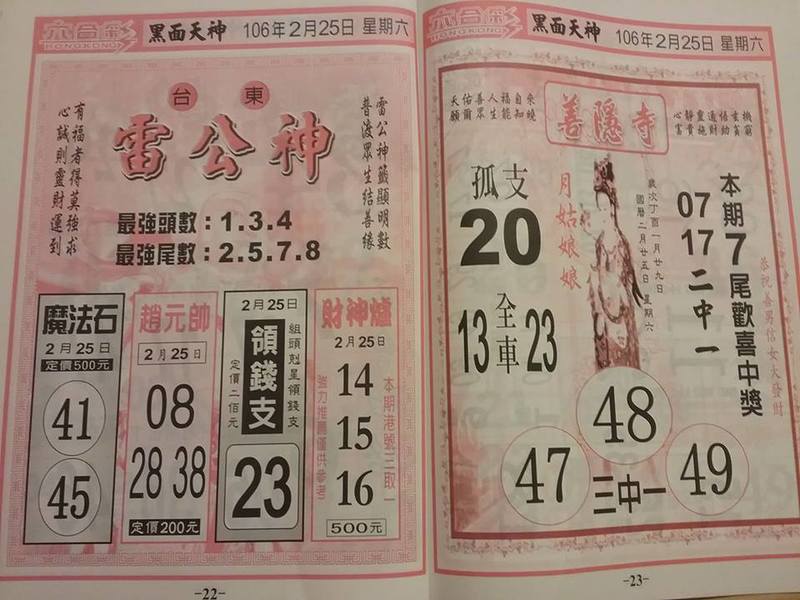 六合彩
HONGKONG
黑面天神
106年2月25日 星期六
台東
雷公神
雷公神籤顯明數
普渡眾生結善緣
有福者得莫強求
心誠則靈財運到
最強頭數：1.3.4
最強尾數：2.5.7.8
魔法石
2月25日
定價500元
41
45
趙元帥
2月25日
08
28 38
定價200元
2月25日
領錢支
組頭剋星領錢支
定價二佰元
23
財神爐
2月25日
本期港號三取一
強力推薦僅供參考
14
15
16
500元
-22-
六合彩
HONGKONG
黑面天神
106年2月25日 星期六
善隱寺
天佑善人福自來
願爾眾生能知曉
心靜靈通悟玄機
孤支
20
月姑娘娘
歲次丁酉一月廿九日
國曆二月廿五日 星期六
07
17
二中一
本期7尾歡喜中獎
恭祝善男信女大發財
13 全車 23
48
47
三中一
49
-23-